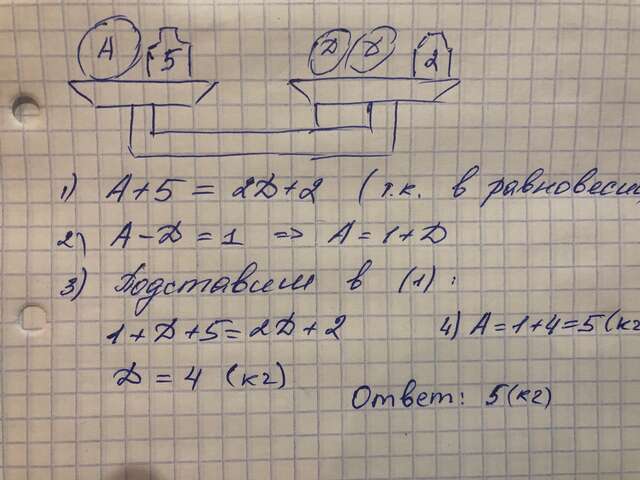 А 5 Д Д 2
1) А+5 = 2Д+2 (т.к. в равновесии
2) А-Д=1 => А=1+Д
3) Подставим в (1):
1+Д+5=2Д+2 4) А=1+4=5(кг
Д = 4 (кг)
Ответ: 5(кг)